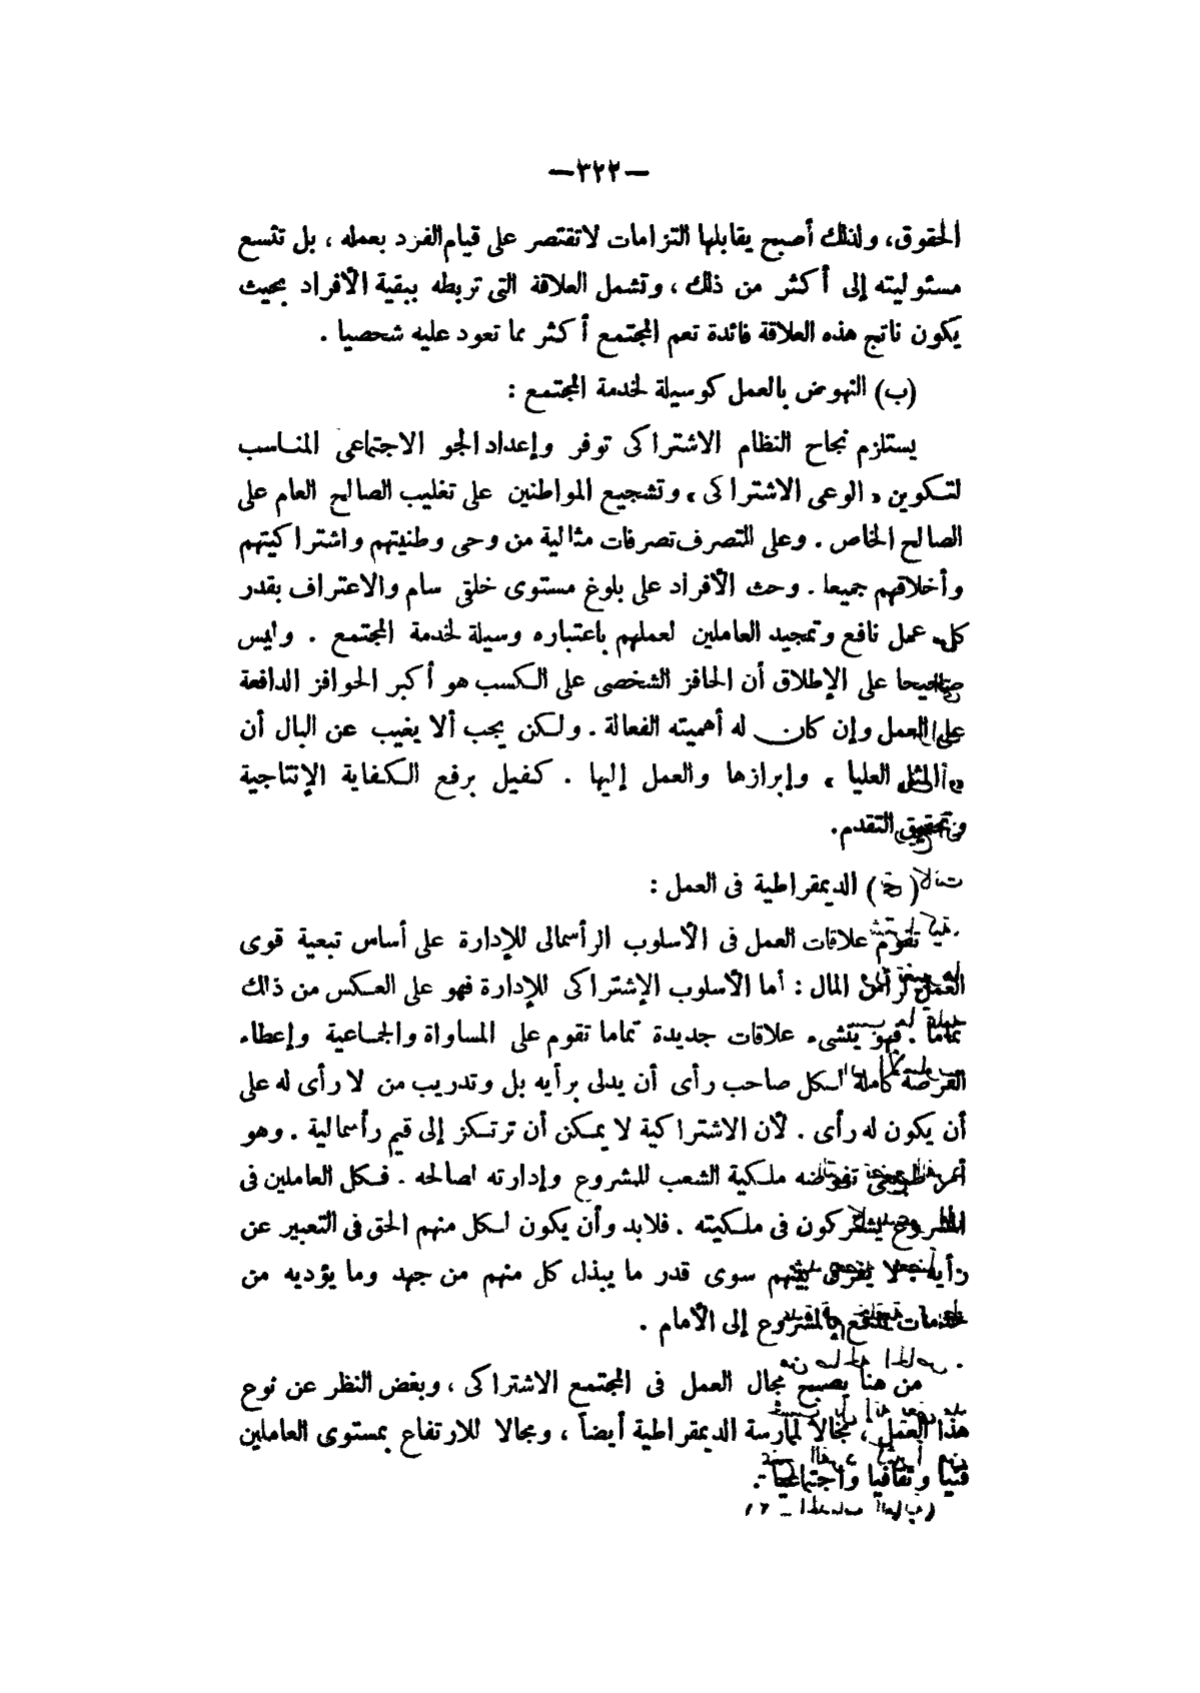 —٣٢٢—
الحقوق، ولذلك أصبح يقابلها التزامات لاتقتصر على قيام الفرد بعمله ، بل تتسع
مسئوليته إلى أكثر من ذلك ، وتشمل العلاقة التى تربطه ببقية الأفراد بحيث
يكون ناتج هذه العلاقة فائدة تعم المجتمع أكثر مما تعود عليه شخصيا .
(ب) النهوض بالعمل كوسيلة لخدمة المجتمع :
يستلزم نجاح النظام الاشتراكى توفر وإعداد الجو الاجتماعى المناسب
لتكوين « الوعى الاشتراكى » وتشجيع المواطنين على تغليب الصالح العام على
الصالح الخاص . وعلى التصرف تصرفات مثالية من وحى وطنيتهم واشتراكيتهم
وأخلاقهم جميعا . وحث الأفراد على بلوغ مستوى خلقى سام والاعتراف بقدر
كل عمل نافع وتمجيد العاملين لعملهم باعتباره وسيلة لخدمة المجتمع . وليس
صحيحا على الإطلاق أن الحافز الشخصى على الكسب هو أكبر الحوافز الدافعة
على العمل وإن كان له أهميته الفعالة . ولكن يجب ألا يغيب عن البال أن
« المثل العليا » وإبرازها والعمل إليها . كفيل برفع الكفاية الإنتاجية
وتحقيق التقدم.
(ج) الديمقراطية فى العمل :
تقوم علاقات العمل فى الأسلوب الرأسمالى للإدارة على أساس تبعية قوى
العمل لرأس المال : أما الأسلوب الإشتراكى للإدارة فهو على العكس من ذلك
تماما . فهو ينشىء علاقات جديدة تماما تقوم على المساواة والجماعية وإعطاء
الفرصة كاملة لكل صاحب رأى أن يدلى برأيه بل وتدريب من لا رأى له على
أن يكون له رأى . لأن الاشتراكية لا يمكن أن ترتكز إلى قيم رأسمالية . وهو
أمر طبيعى تفرضه ملكية الشعب للمشروع وإدارته لصالحه . فكل العاملين فى
المشروع يشتركون فى ملكيته . فلابد وأن يكون لكل منهم الحق فى التعبير عن
رأيه لا يفرق بينهم سوى قدر ما يبذل كل منهم من جهد وما يؤديه من
خدمات للدفع بالمشروع إلى الأمام .
من هنا يصبح مجال العمل فى المجتمع الاشتراكى ، وبغض النظر عن نوع
هذا العمل ، مجالا لممارسة الديمقراطية أيضاً ، ومجالا للارتفاع بمستوى العاملين
فنيا وثقافيا واجتماعيا .